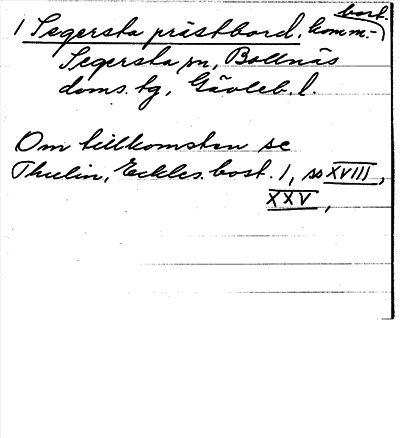 bost.
1 Segersta prästbord, komm.-
Segersta sn, Bollnäs
doms. tg, Gävleb. l.
Om tillkomsten se
Thulin, Eckles. bost. 1, ss XVIII,
XXV,